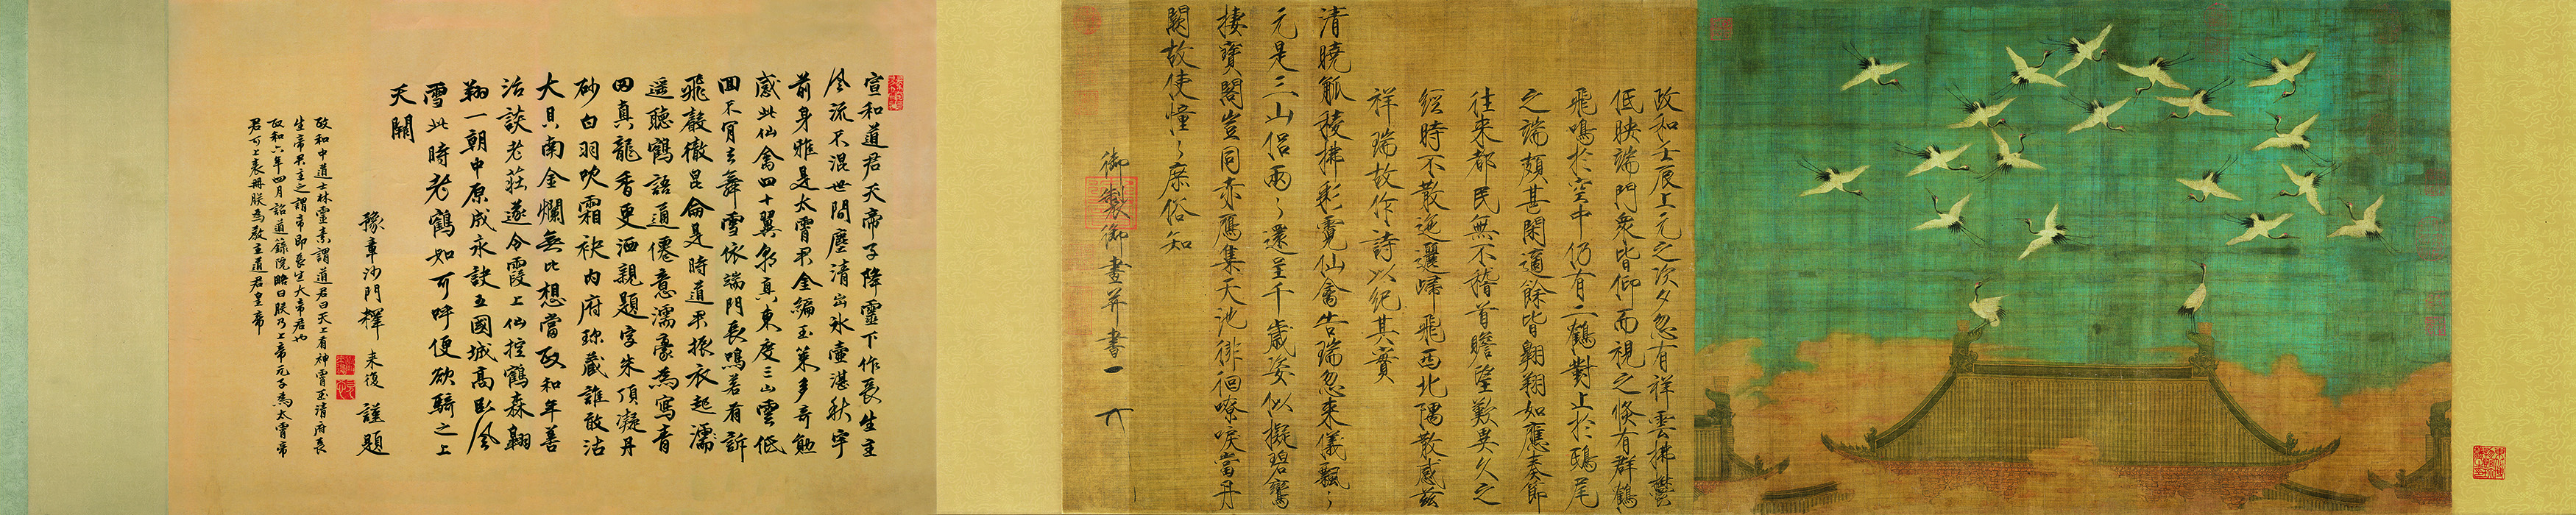 政和壬辰上元之次夕忽有祥雲拂鬱
低映端門衆皆仰而視之倏有群鶴
飛鳴於空中仍有二鶴對止於鴟尾
之端頗甚閑適餘皆翺翔如應奏節
往来都民無不稽首瞻望歎異久之
經時不散迤邐歸飛西北隅散感茲
祥瑞故作詩以紀其實
清曉觚稜拂彩霓仙禽告瑞忽来儀飄〻
元是三山侶兩〻還呈千歲姿似擬碧鸞
棲寶閣豈同赤鴈集天池徘徊嘹唳當丹
闕故使憧〻庶俗知
御製御畫并書
宣和道君天帝子降靈下作長生主
風流不混世間塵清出冰壺湛秋宇
前身雅是太霄君金編玉策多奇勉
感此仙禽四十翼朝真東度三山雲低
回不肯去舞雪依端門長鳴若有訴
飛聲徹昆侖是時道君振衣起濡
遥聽鶴語通僊意濡豪為寫青
田真龍香更洒親題字朱頂凝丹
砂白羽吹霜袂内府珎藏誰敢沽
大貝南金爛無比想當政和年善
治談老莊遂令霞上仙控鶴森翱
翔一朝中原成永訣五國城高臥風
雪此時老鶴如可呼便欲騎之上
天關
豫章沙門釋来復謹題
政和中道士林靈素謂道君曰天上有神霄玉清府長
生帝君主之謂帝即長生大帝君也
政和六年四月詔道錄院略曰朕乃上帝元子為太霄帝
君可上表冊朕為教主道君皇帝